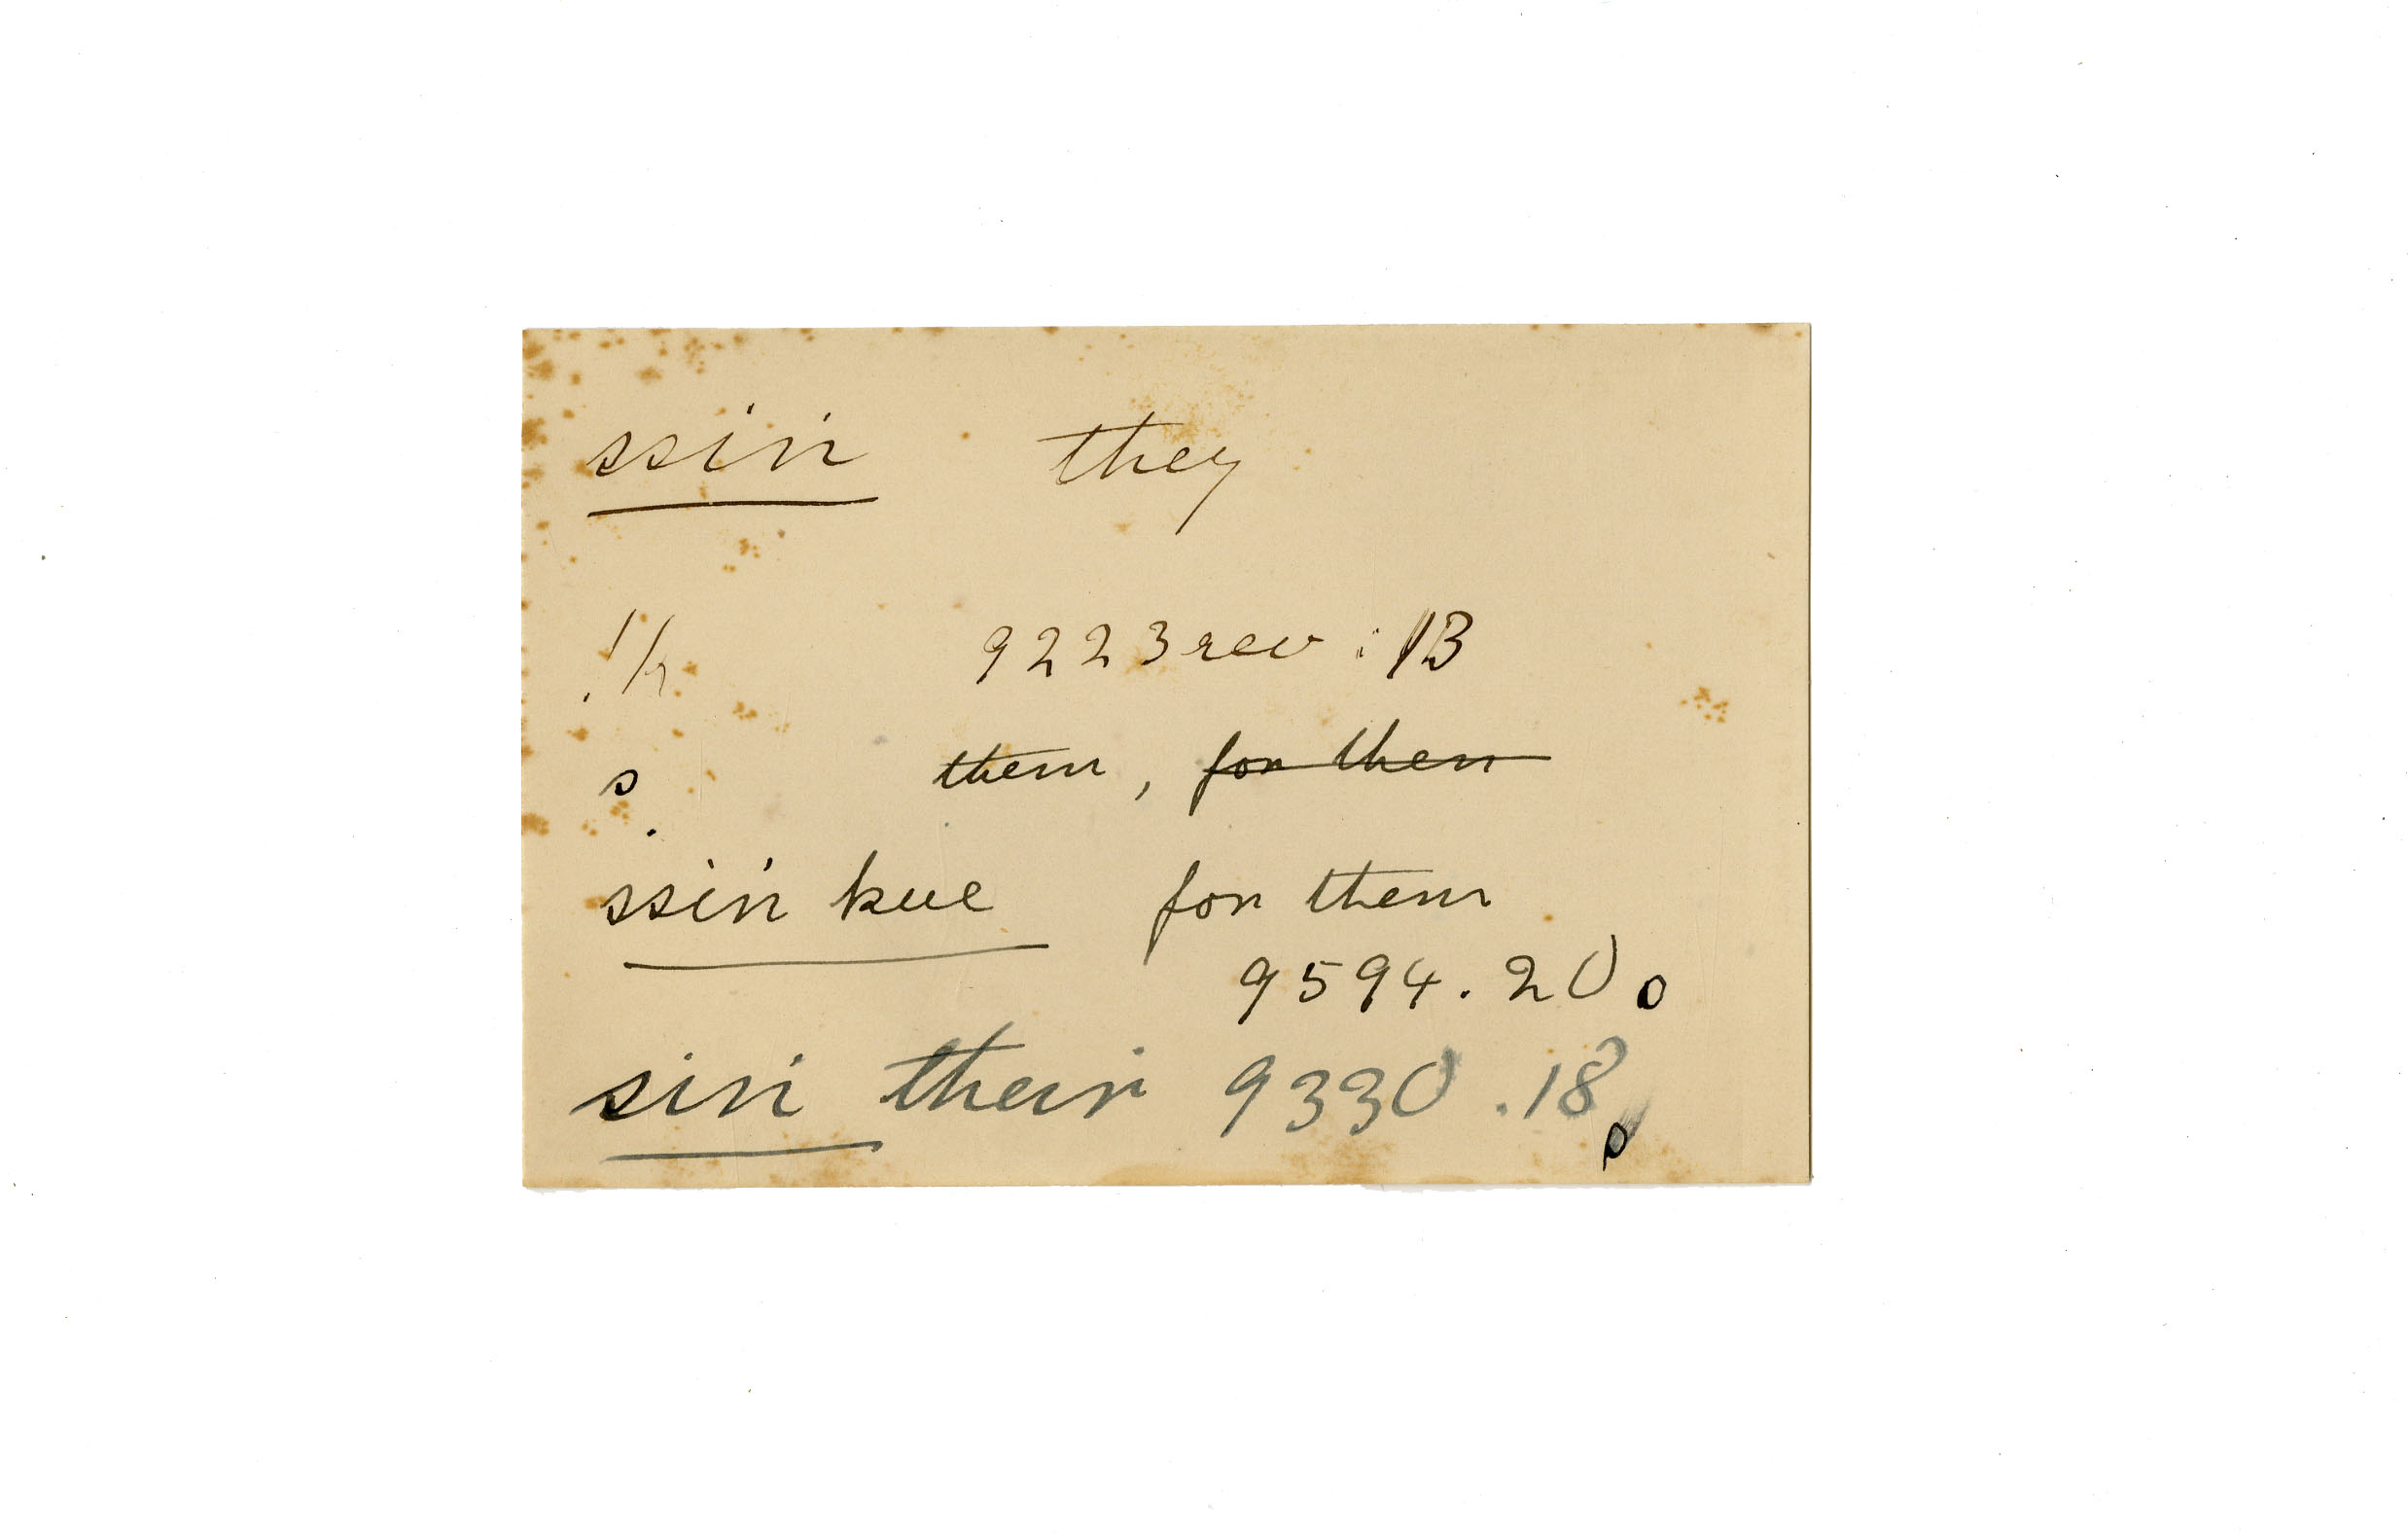 ssin they
!k 9223 rev : 13
s them, for them
ssin kue for them
9594.20
sin their 9330.18